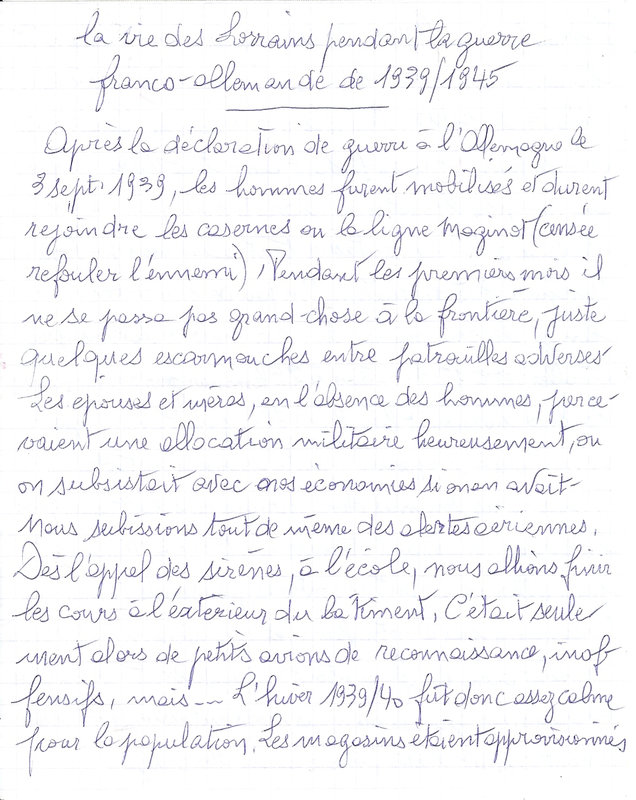 la vie des Lorrains pendant la guerre
franco-allemande de 1939/1945
Après la déclaration de guerre à l'Allemagne le
3 sept. 1939, les hommes furent mobilisés et durent
rejoindre les casernes ou la ligne Maginot (censée
refouler l'énnemi). Pendant les premiers mois il
ne se passa pas grand-chose à la frontière, juste
quelques escarmouches entre patrouilles adverses
Les épouses et mères, en l'absence des hommes, perce-
vaient une allocation militaire heureusement, ou
on subsistait avec nos économies si on en avait-
Nous subissions tout de même des alertes aériennes.
Dès l'appel des sirènes, à l'école, nous allions finir
les cours à l'extérieur du bâtiment. C'était seule
ment alors de petits avions de reconnaissance, inof-
fensifs, mais... L'hiver 1939/40 fut donc assez calme
pour la population. Les magasins étaient approvisionnés